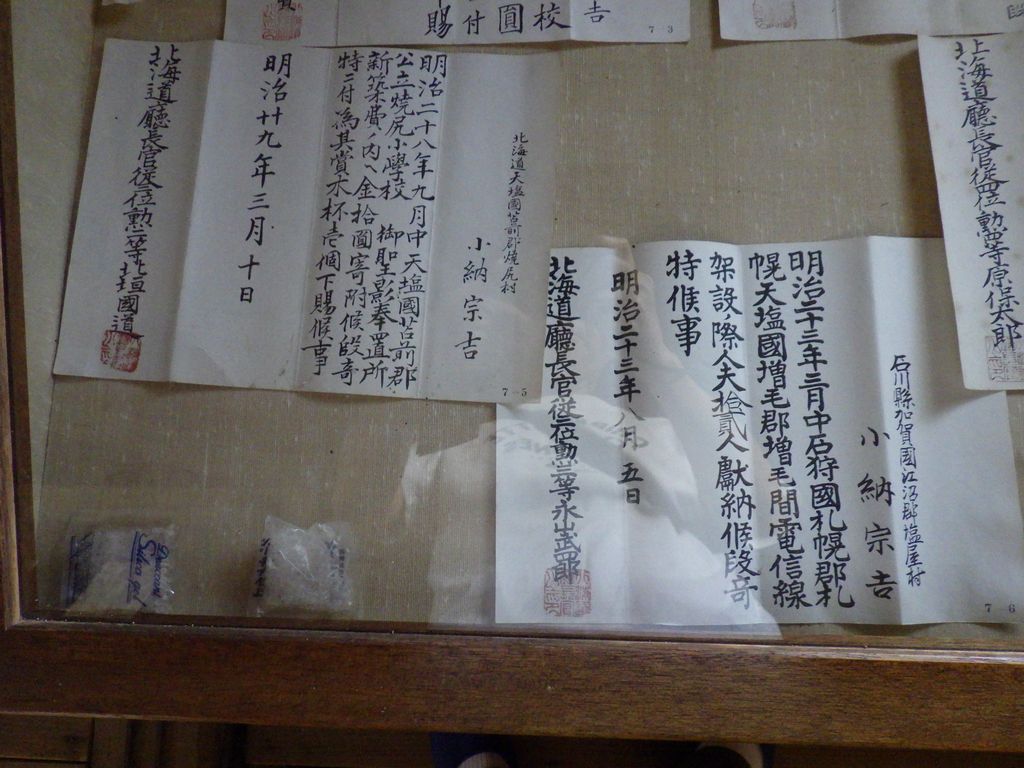 吉
校
圓
付
賜
7 3
北海道天塩國苫前郡焼尻村
小納宗吉
明治二十八年九月中天塩國苫前郡
公立焼尻小學校 御聖影奉置所
新築費ノ内ヘ金拾圓寄附候段奇
特ニ付為其賞木杯壱個下賜候事
明治廿九年三月十日
北海道廳長官従三位勲二等北垣國道
7 5
北海道廳長官従四位勲四等原保太郎
石川縣加賀國江沼郡塩屋村
小納宗吉
明治二十三年三月中石狩國札幌郡札
幌天塩國増毛郡増毛間電信線
架設際人夫拾貳人獻納候段奇
特候事
明治二十三年八月五日
北海道廳長官従三位勲三等永山武四郎
7 6
Silica gel